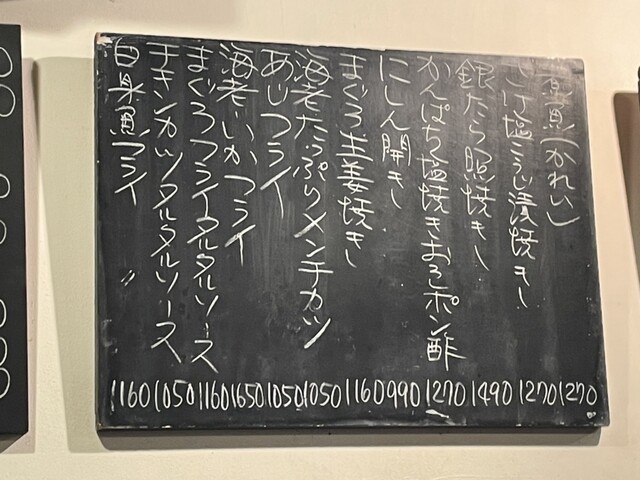 魚(かれい) 1270
さけ塩こうじ漬焼き 1270
銀だら照焼き 1490
かんぱち塩焼きおろしポン酢 1270
にしん開き 990
まぐろ生姜焼き 1160
海老たっぷりメンチカツ 1050
あじフライ 1050
海老・いかフライ 1650
まぐろフライタルタルソース 1160
チキンカツタルタルソース 1050
白魚フライ 〃 1160